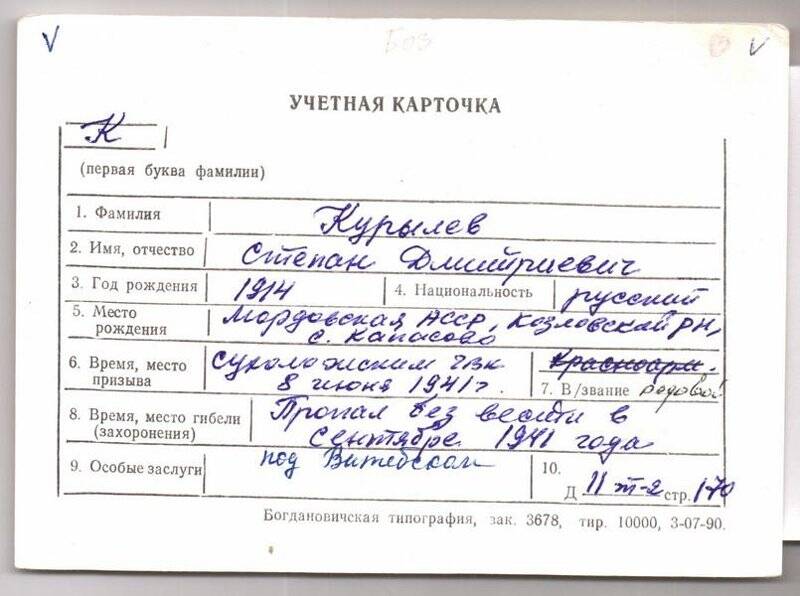 Боз
УЧЕТНАЯ КАРТОЧКА
К
(первая буква фамилии)
1. Фамилия Курылев
2. Имя, отчество Степан Дмитриевич
3. Год рождения 1914 4. Национальность русский
5. Место рождения Мордовская АССР, Козловской рн,
с. Капасово
6. Время, место призыва Сухоложским гвк
8 июня 1941 г.
Красноарм.
7. В/звание рядовой
8. Время, место гибели (захоронения) Пропал без вести в
сентябре 1941 года
9. Особые заслуги под Витебском
10.
Д 11 т-2 стр. 170
Богдановичская типография, зак. 3678, тир. 10000, 3-07-90.